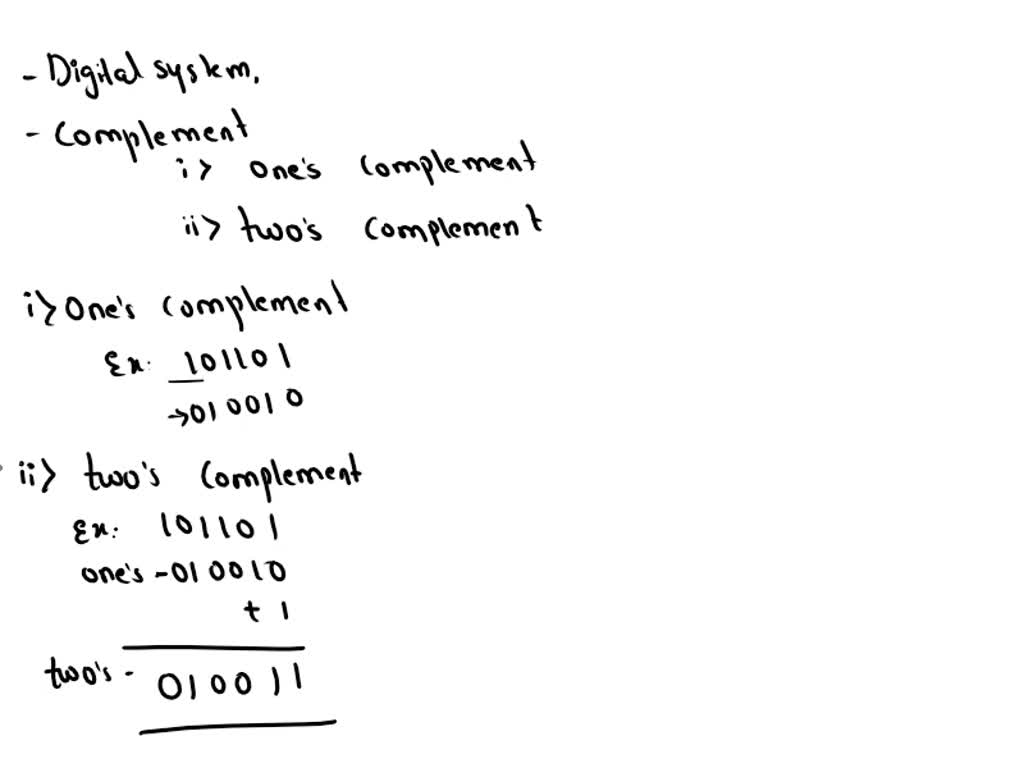 - Digital system.
- Complement
i> one's complement
ii> two's complement
i> One's complement
Ex: 101101
→010010
ii> two's complement
Ex: 101101
one's -010010
+ 1
two's - 010011